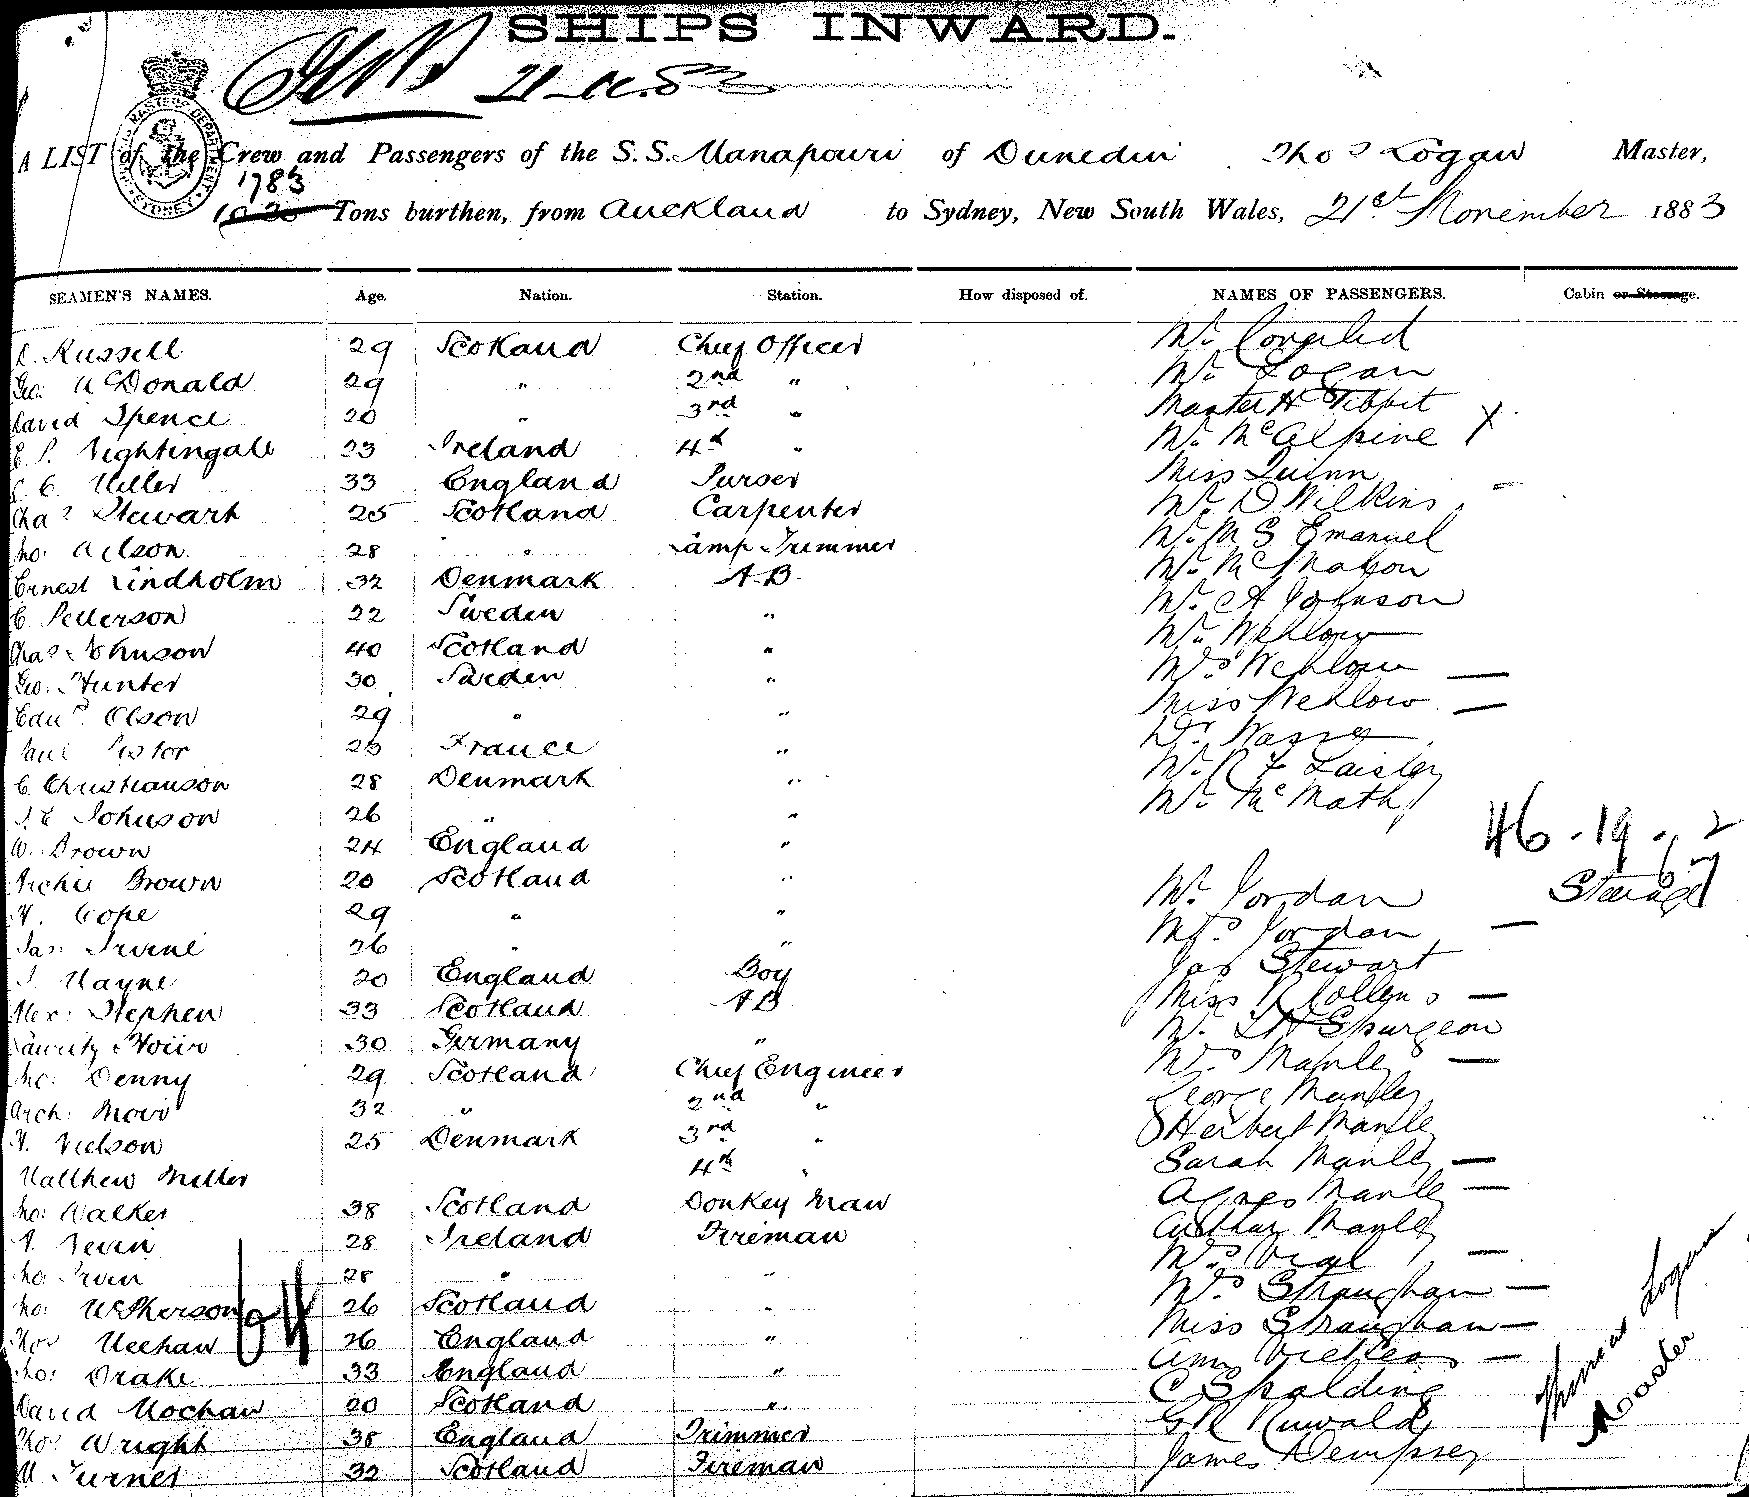 SHIPS INWARD.
21
A LIST of the Crew and Passengers of the S.S. Manapouri of Dunedin Thos Logan Master,
1783
Tons burthen, from Auckland to Sydney, New South Wales, 21st November 1883
SEAMEN'S NAMES. Age. Nation. Station. How disposed of. NAMES OF PASSENGERS. Cabin or Steerage.
Russell 29 Scotland Chief Officer Mr
Geo: McDonald 29 " 2nd " Mr Logan
David Spence 20 " 3rd " Master H Tibbit
P. Nightingale 23 Ireland 4th " Mr McAlpine X
Miller 33 England Purser Miss Quinn
Chas Stewart 25 Scotland Carpenter Mr D Wilkins
Jno: Wilson 28 " Lamp Trimmer Mr M S Emanuel
Ernest Lindholm 32 Denmark A.B. Mr McMahon
C. Petterson 22 Sweden " Mr C A Johnson
Chas Johnson 40 Scotland " Mr Wehlow
Geo: Hunter 30 Sweden " Mrs Wehlow —
Edwd. Olson 29 " " Miss Wehlow —
Paul Pistor 23 France "
C. Christianson 28 Denmark " Mr R F Laisley
Johnson 26 " " Mr McMath
W. Brown 24 England " 46 . 19 .
Archie Brown 20 Scotland " Mr Jordan Steerage
H. Cope 29 " " Mrs Jordan —
Jas: Irvine 26 " " Jas Stewart
Mayne 20 England Boy Miss R Collens —
Alex: Stephen 33 Scotland A B Mr Spurgeon
30 Germany " Mrs Manley —
Jno: Denny 29 Scotland Chief Engineer George Manley
Arch: Moir 32 " 2nd " Herbert Manley
Nielson 25 Denmark 3rd " Sarah Manley —
Matthew Miller 4th " Agnes Manley —
Jno: Walker 38 Scotland Donkey Man Arthur Manley
Nevin 28 Ireland Fireman Mrs —
Jno Irvin 28 " " Mrs Straughan —
Jno: McPherson 26 Scotland " Miss Straughan —
Thos Meehan 26 England " Amy —
Drake 33 England " C Spalding
David Mochan 20 Scotland "
Thos Wright 38 England Trimmer James Dempsey
M. Turner 32 Scotland Fireman
64
Thomas Logan
Master